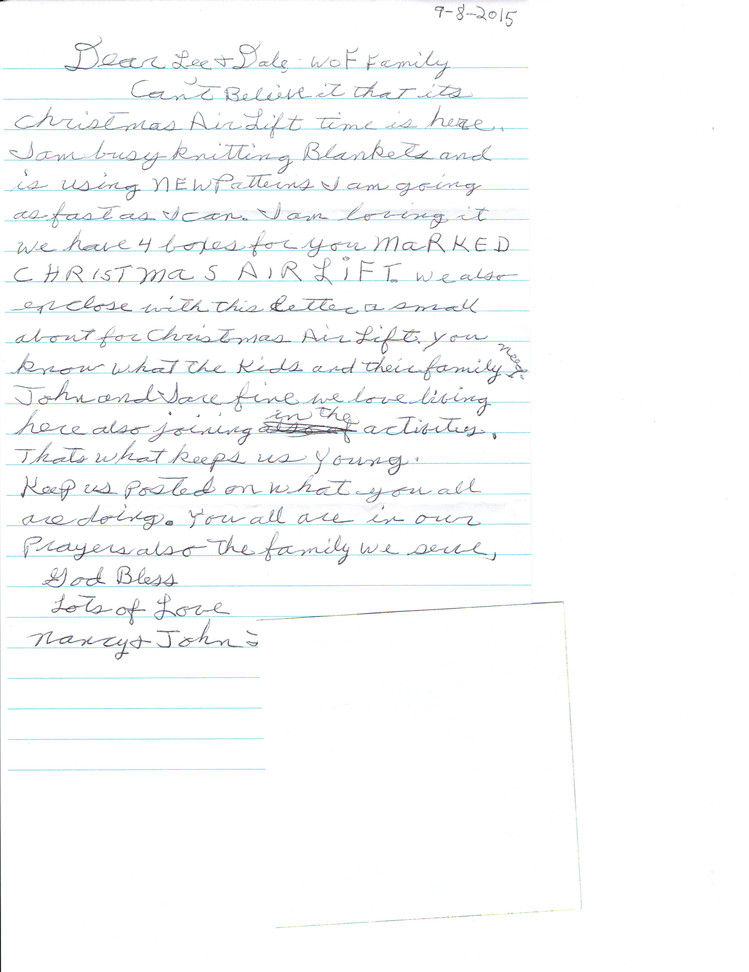 9-8-2015
Dear Lee + Dale WOF Family
Can't Believe it that its
Christmas Air Lift time is here.
I am busy knitting Blankets and
is using NEW Patterns I am going
as fast as I can. I am loving it
we have 4 boxes for you MaRKED
CHRISTMaS AIRLiFT. we also
enclose with this letter a small
about for Christmas Air Lift. You
know what the Kids and their family need.
John and I are fine we love living
here also joining in the activities.
Thats what keeps us young.
Keep us posted on what you all
are doing. You all are in our
Prayers also the family we serve,
God Bless
Lots of Love
Nancy + John